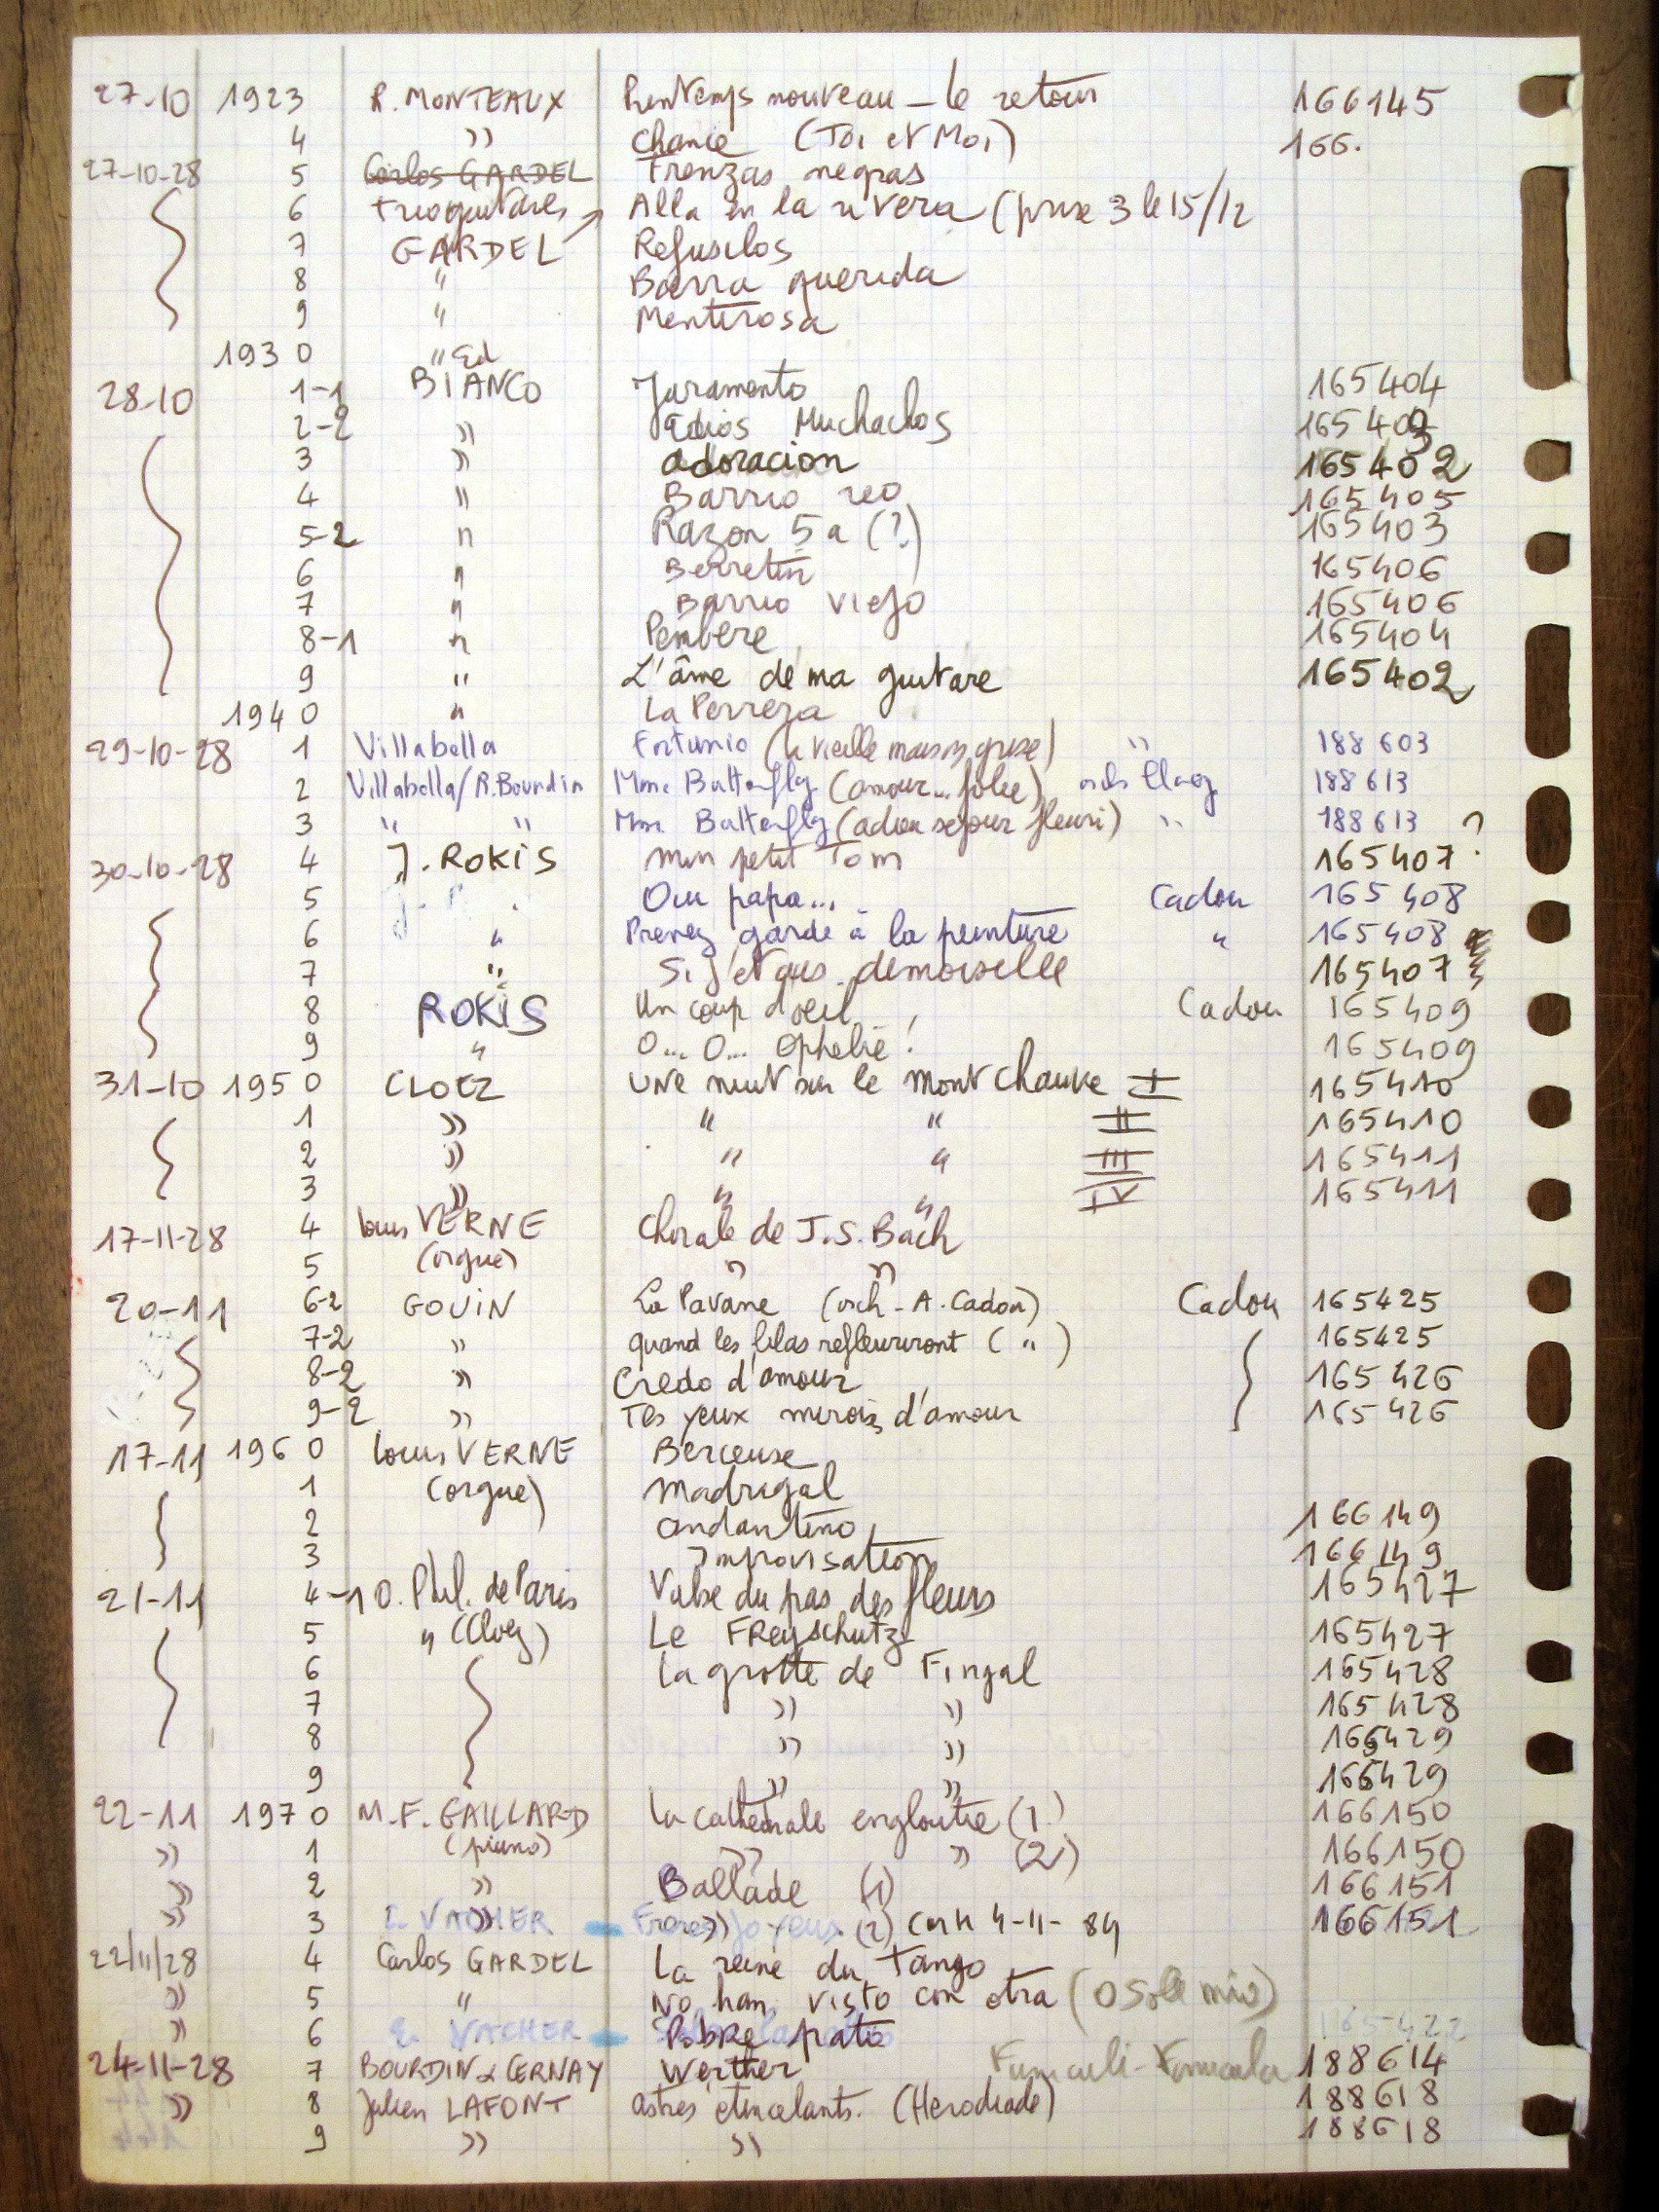 27-10 1923 R. MONTEAUX Printemps nouveau - le retour 166145
4 » Chance (Toi et Moi) 166.
27-10-28 5 Carlos GARDEL Trenzas negras
6 trio guitares Alla en la rivera (prise 3 le 15/12
7 GARDEL Refusilos
8 " Barra querida
9 " Mentirosa
1930 " Ed
28-10 1-1 BIANCO Juramento 165404
2-2 » Adios Muchachos
3 » adoracion 165402
4 » Barrio reo 165405
5-2 " Razon 5a (?) 165403
6 " Berretin 165406
7 " Barrio viejo 165406
8-1 " Pembere 165404
9 " L'âme de ma guitare 165402
1940 " La Perrera
29-10-28 1 Villabella Fortunio (la vieille maison grise) " 188603
2 Villabella/R.Bourdin Mme Butterfly (amour... folie) orch Cloez 188613
3 " " Mme Butterfly (adieu sejour fleuri) " 188613 ?
30-10-28 4 J. ROKIS mon petit Tom 165407
5 Oui papa... Cadou 165408
6 " Prenez garde à la peinture " 165408
7 " Si j'etais demoiselle 165407
8 ROKIS Un coup d'oeil Cadou 165409
9 " O... O... Ophelie ! 165409
31-10 1950 CLOEZ Une nuit sur le mont chauve I 165410
1 » " " II 165410
2 » " " III 165411
3 » " " IV 165411
17-11-28 4 Louis VERNE Chorale de J.S. Bach
5 (orgue) » »
20-11 6-2 GOUIN La Pavane (orch - A. Cadou) Cadou 165425
7-2 » quand les lilas refleuriront ( " ) 165425
8-2 » Credo d'amour 165426
9-2 » Tes yeux miroirs d'amour 165426
17-11 1960 Louis VERNE Berceuse
1 (orgue) Madrigal
2 andantino 166149
3 Improvisation 166149
21-11 4-1 O. Phil. de Paris Valse du pas des fleurs 165427
5 " (Cloez) Le Freyschutz 165427
6 La grotte de Fingal 165428
7 » » 165428
8 » » 165429
9 » » 165429
22-11 1970 M.F. GAILLARD La cathedrale engloutie (1) 166150
» 1 (piano) » » (2) 166150
» 2 » Ballade (1) 166151
» 3 E. VACHER » joyeux (2) 4-11-84 166151
22/11/28 4 Carlos GARDEL La reine du Tango
» 5 " No han visto con otra (O Sole mio)
» 6 E. VACHER Pobre pato 165422
24-11-28 7 BOURDIN & CERNAY Werther Funiculi-Funicula 188614
» 8 Julien LAFONT astres etincelants. (Herodiade) 188618
9 » » 188618